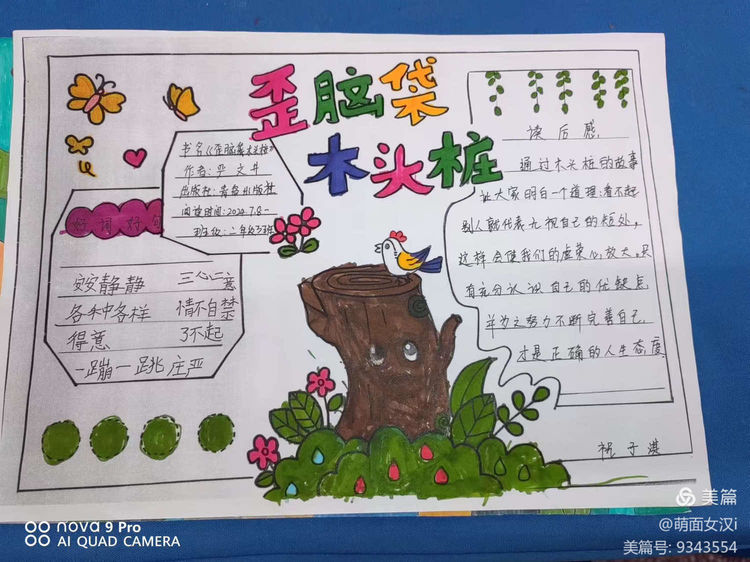 歪脑袋
木头桩
书名《歪脑袋木头桩》
作者:严文井
出版社:青岛出版社
阅读时间:2024.7.8-
班级:二年级3班
好词好句
安安静静 三心二意
各种各样 情不自禁
得意 了不起
一蹦一跳 庄严
读后感
通过木头桩的故事
让大家明白一个道理:看不起
别人就代表无视自己的短处,
这样会使我们的虚荣心放大。只
有充分认识自己的优缺点
并为之努力不断完善自己,
才是正确的人生态度
子淇
nova 9 Pro
AI QUAD CAMERA
美篇
@萌面女汉i
美篇号: 9343554